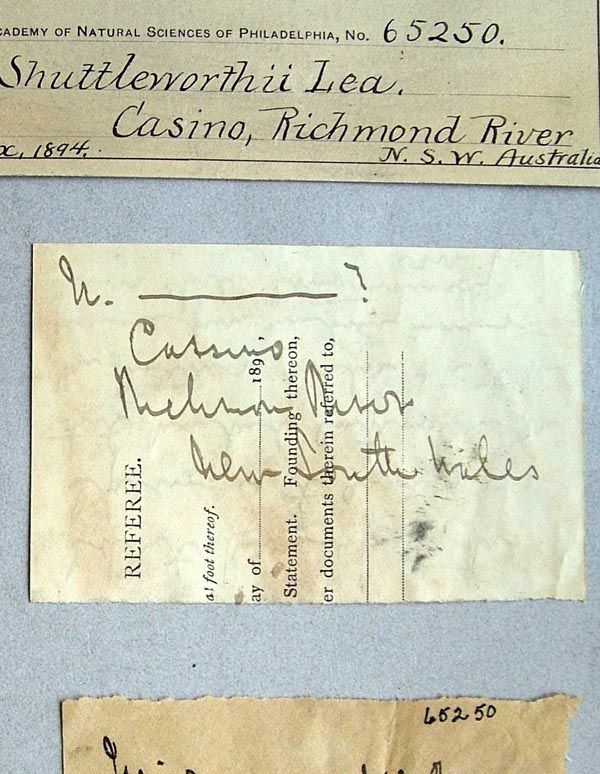 ACADEMY OF NATURAL SCIENCES OF PHILADELPHIA, NO. 65250.
Shuttleworthii Lea.
Casino, Richmond River
1894. N. S. W. Australia
U. ———— ?
Cassino
Richmon River
New South Wales
REFEREE.
at foot thereof.
ay of 189 ,
Statement. Founding thereon,
er documents therein referred to,
65250